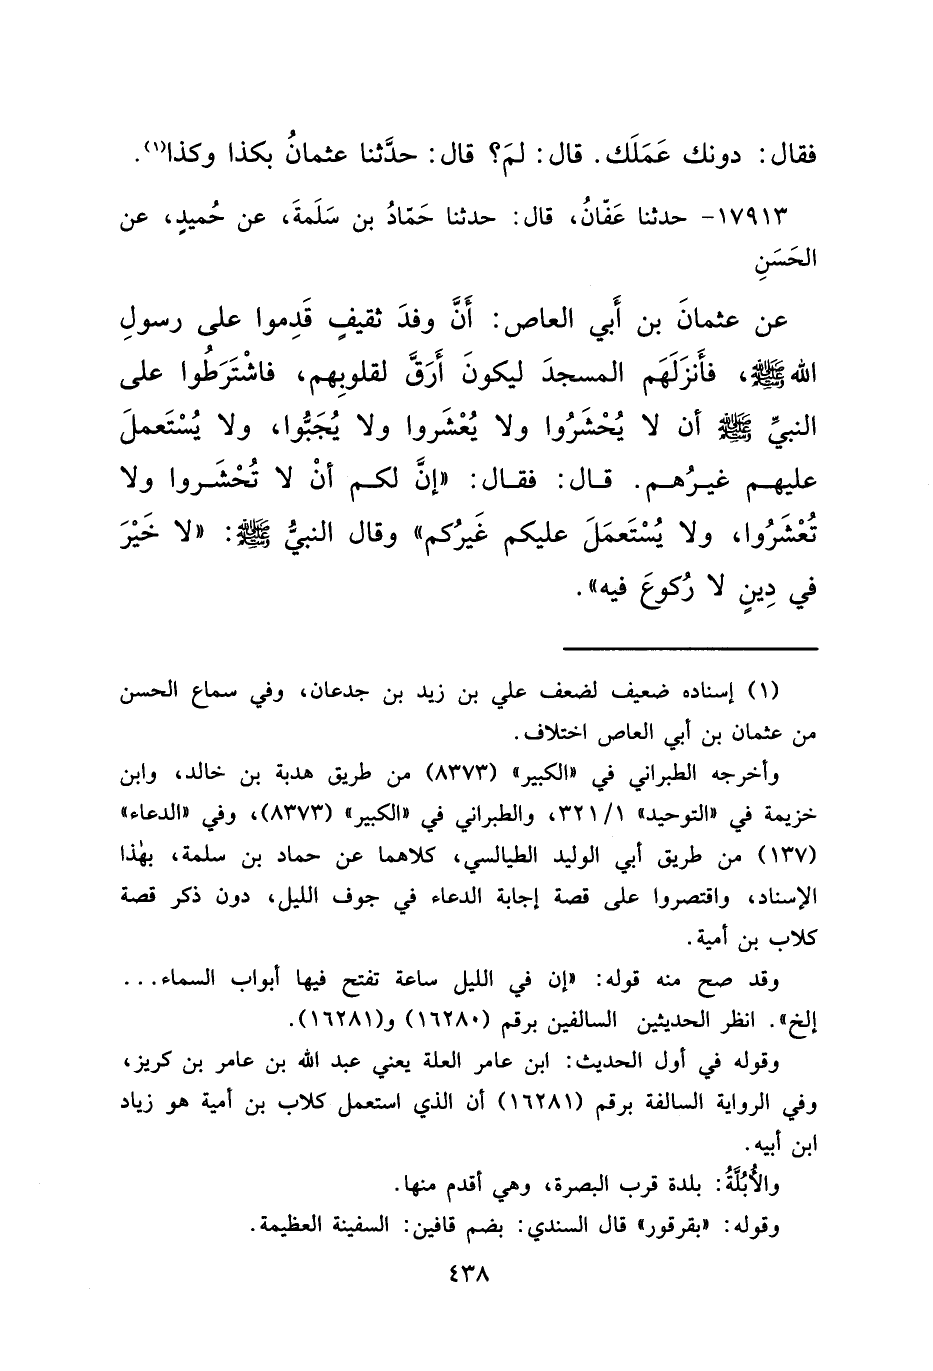 فقال: دونك عَمَلَك. قال: لمَ؟ قال: حدَّثنا عثمانُ بكذا وكذا(١).
١٧٩١٣- حدثنا عَفّانُ، قال: حدثنا حَمّادُ بن سَلَمةَ، عن حُميدٍ، عن
الحَسَنِ
عن عثمانَ بن أَبي العاص: أَنَّ وفدَ ثقيفٍ قَدِموا على رسولِ
الله ﷺ، فأَنزَلَهَم المسجدَ ليكونَ أَرَقَّ لقلوبِهم، فاشْتَرَطُوا على
النبيِّ ﷺ أن لا يُحْشَرُوا ولا يُعْشَروا ولا يُجَبُّوا، ولا يُسْتَعملَ
عليهم غيرُهم. قال: فقال: «إنَّ لكم أنْ لا تُحْشَروا ولا
تُعْشَرُوا، ولا يُسْتَعمَلَ عليكم غَيرُكم» وقال النبيُّ ﷺ: «لا خَيْرَ
في دِينٍ لا رُكوعَ فيه».
(١) إسناده ضعيف لضعف علي بن زيد بن جدعان، وفي سماع الحسن
من عثمان بن أبي العاص اختلاف.
وأخرجه الطبراني في «الكبير» (٨٣٧٣) من طريق هدبة بن خالد، وابن
خزيمة في «التوحيد» ٣٢١/١، والطبراني في «الكبير» (٨٣٧٣)، وفي «الدعاء»
(١٣٧) من طريق أبي الوليد الطيالسي، كلاهما عن حماد بن سلمة، بهٰذا
الإسناد، واقتصروا على قصة إجابة الدعاء في جوف الليل، دون ذكر قصة
كلاب بن أمية.
وقد صح منه قوله: «إن في الليل ساعة تفتح فيها أبواب السماء...
إلخ». انظر الحديثين السالفين برقم (١٦٢٨٠) و(١٦٢٨١).
وقوله في أول الحديث: ابن عامر العلة يعني عبد الله بن عامر بن كريز،
وفي الرواية السالفة برقم (١٦٢٨١) أن الذي استعمل كلاب بن أمية هو زياد
ابن أبيه.
والأُبُلَّةُ: بلدة قرب البصرة، وهي أقدم منها.
وقوله: «بقرقور» قال السندي: بضم قافين: السفينة العظيمة.
٤٣٨